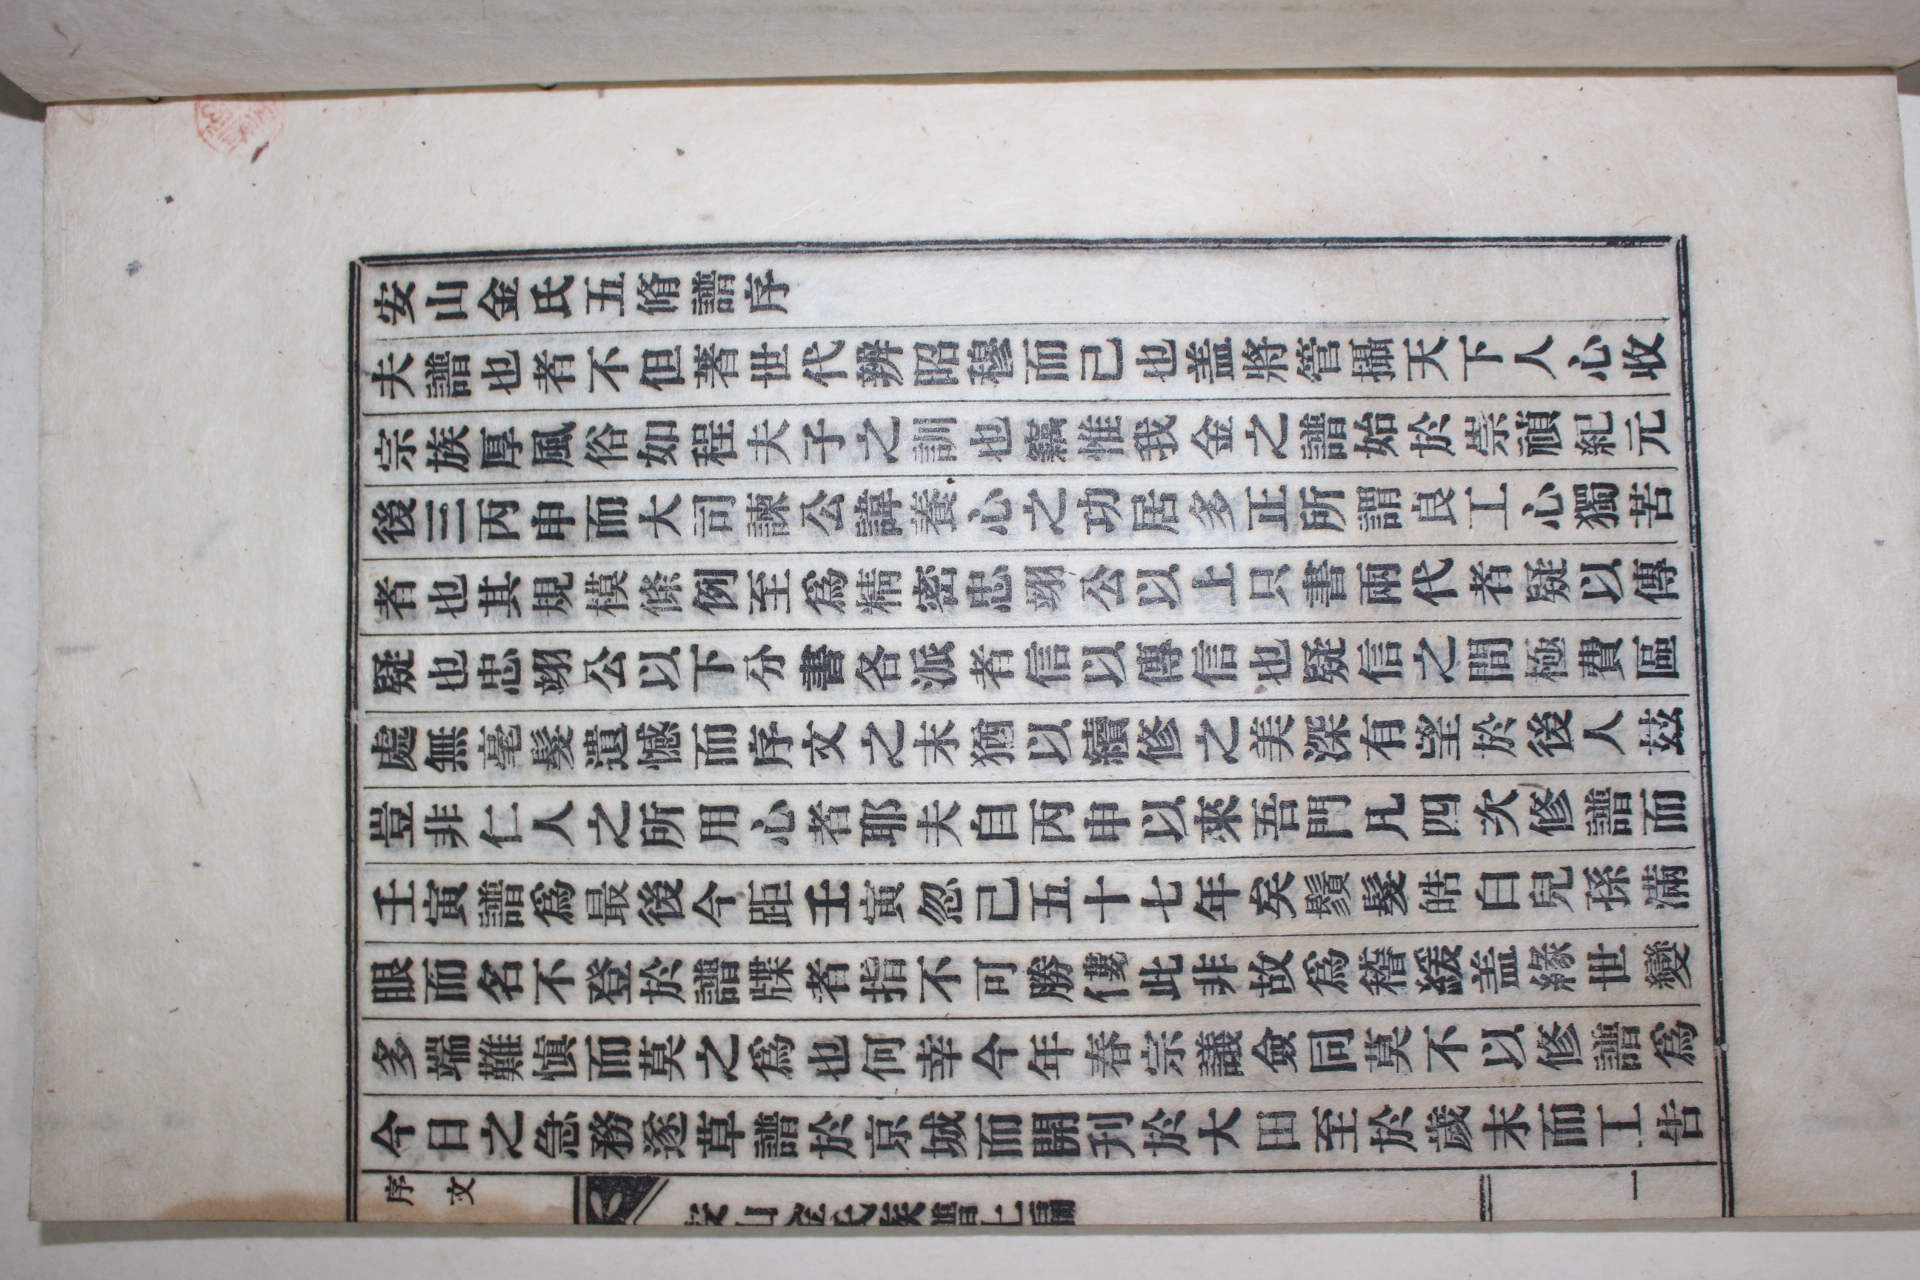 安山金氏五脩譜序
夫譜也者不但著世代辨昭穆而己也盖將管攝天下人心收
宗族厚風俗如程夫子之訓也竊惟我金之譜始於崇禎紀元
後三丙申而大司諫公諱養心之功居多正所謂良工心獨苦
者也其規模條例至爲精密忠翊公以上只書兩代者疑以傳
疑也忠翊公以下分書各派者信以傳信也疑信之間極費區
處無毫髮遺憾而序文之末猶以續修之美深有望於後人玆
豈非仁人之所用心者耶夫自丙申以來吾門凡四次修譜而
壬寅譜爲最後今距壬寅忽己五十七年矣鬚髮皓白兒孫滿
眼而名不登於譜牒者指不可勝僂此非故爲稽緩盖緣世變
多端難愼而莫之爲也何幸今年春宗議僉同莫不以修譜爲
今日之急務遂草譜於京城而開刊於大田至於歲末而工告
序文
安山金氏族譜上編
一